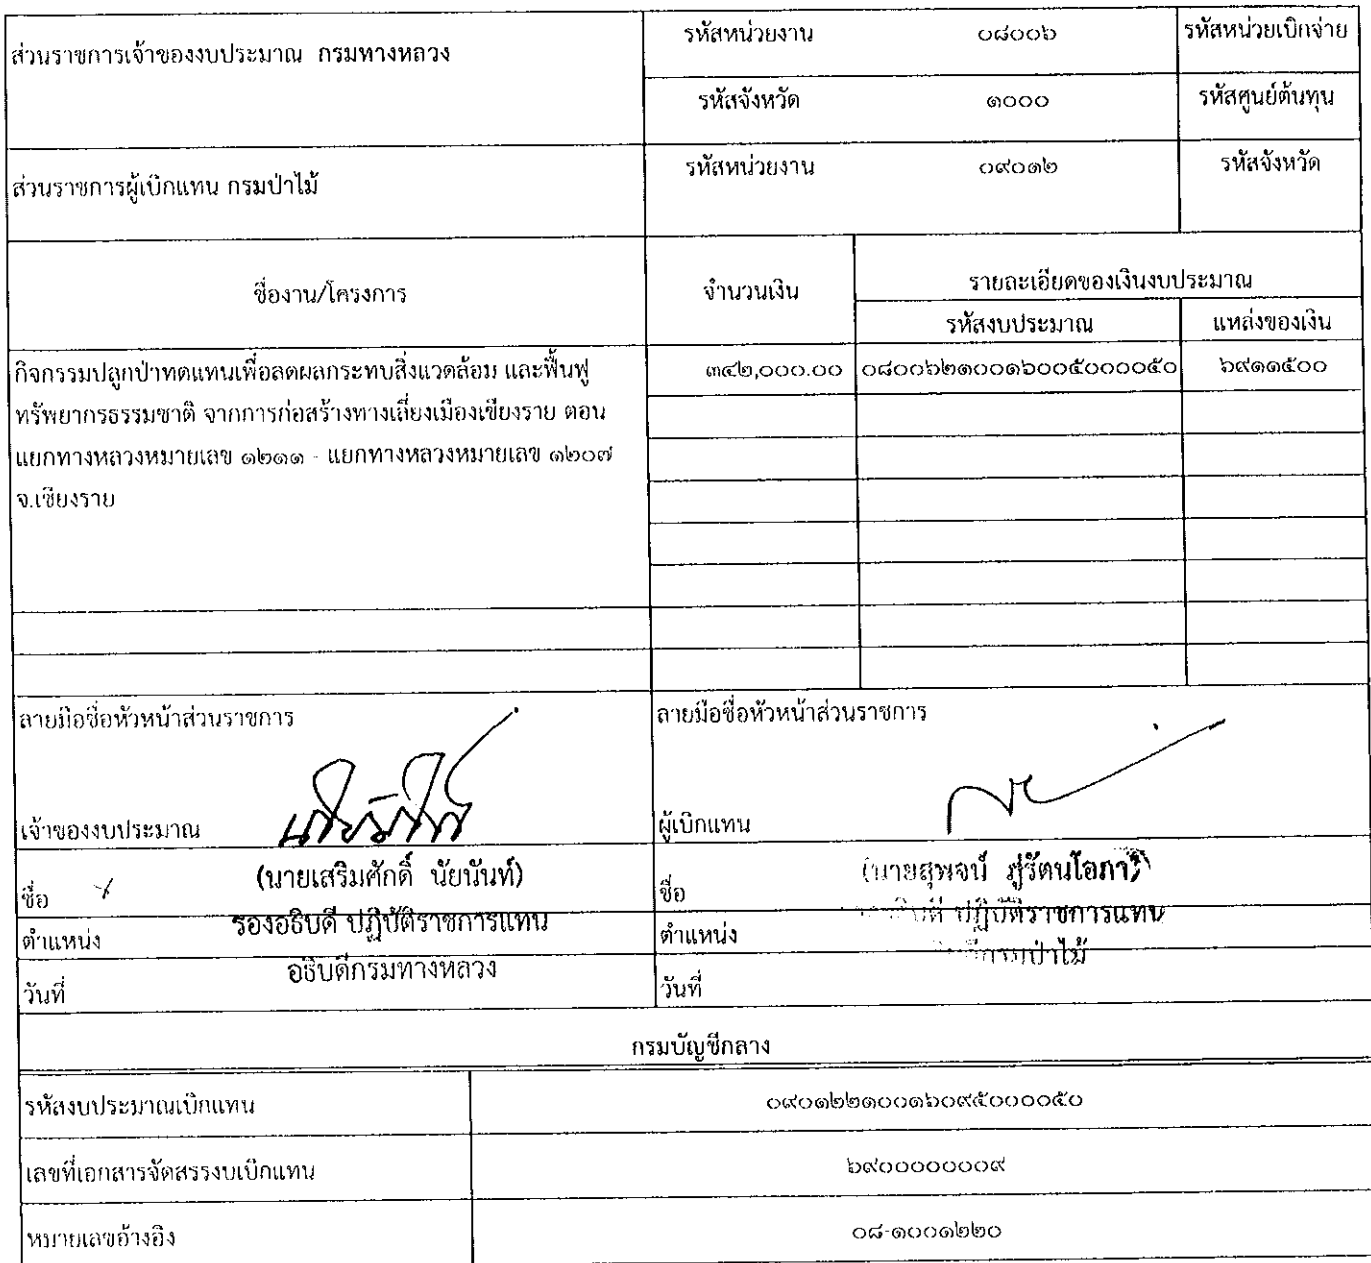 ส่วนราชการเจ้าของงบประมาณ กรมทางหลวง
รหัสหน่วยงาน ๐๘๐๐๖ รหัสหน่วยเบิกจ่าย
รหัสจังหวัด ๑๐๐๐ รหัสศูนย์ต้นทุน
ส่วนราชการผู้เบิกแทน กรมป่าไม้
รหัสหน่วยงาน ๐๙๐๑๒ รหัสจังหวัด
ชื่องาน/โครงการ จำนวนเงิน รายละเอียดของเงินงบประมาณ
รหัสงบประมาณ แหล่งของเงิน
กิจกรรมปลูกป่าทดแทนเพื่อลดผลกระทบสิ่งแวดล้อม และฟื้นฟู ๓๔๒,๐๐๐.๐๐ ๐๘๐๐๖๒๑๐๐๑๖๐๐๕๐๐๐๐๕๐ ๖๙๑๑๕๐๐
ทรัพยากรธรรมชาติ จากการก่อสร้างทางเลี่ยงเมืองเชียงราย ตอน
แยกทางหลวงหมายเลข ๑๒๑๑ - แยกทางหลวงหมายเลข ๑๒๐๗
จ.เชียงราย
ลายมือชื่อหัวหน้าส่วนราชการ
เจ้าของงบประมาณ
ชื่อ (นายเสริมศักดิ์ นัยนันท์)
ตำแหน่ง รองอธิบดี ปฏิบัติราชการแทน
อธิบดีกรมทางหลวง
วันที่
ลายมือชื่อหัวหน้าส่วนราชการ
ผู้เบิกแทน
ชื่อ (นายสุพจน์ ภู่รัตนโอภา)
ตำแหน่ง ปฏิบัติราชการแทน
กรมป่าไม้
วันที่
กรมบัญชีกลาง
รหัสงบประมาณเบิกแทน ๐๙๐๑๒๒๑๐๐๑๖๐๙๕๐๐๐๐๕๐
เลขที่เอกสารจัดสรรงบเบิกแทน ๖๙๐๐๐๐๐๐๐๙
หมายเลขอ้างอิง ๐๘-๑๐๐๑๒๒๐